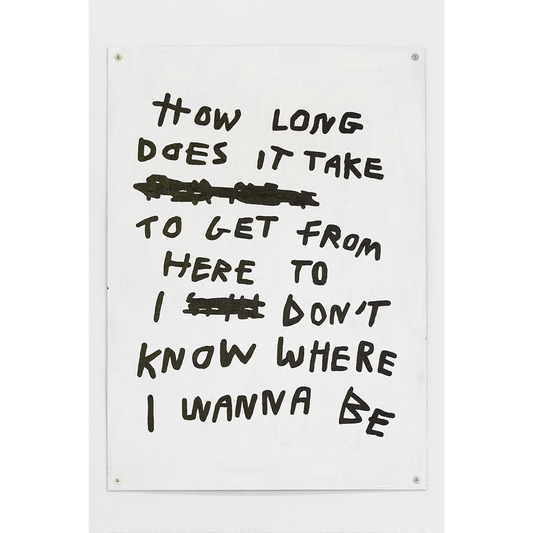 HOW LONG
DOES IT TAKE
TO GET FROM
HERE TO
I DON'T
KNOW WHERE
I WANNA BE